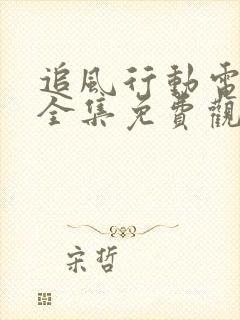 追風行動電
全集免費觀
宋哲